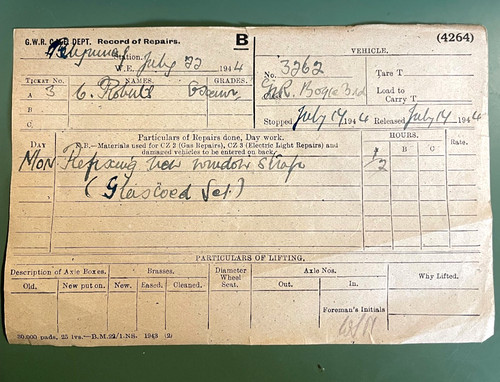 G.W.R. C.&W. DEPT. Record of Repairs. B (4264)
Station.
W.E. July 22 1944
VEHICLE.
TICKET No. NAMES. GRADES.
No. 3262 Tare T
A 3 C. Roberts
B
C
Bogie 3rd Load to Carry T
Stopped July 17 1944 Released July 17 1944
Particulars of Repairs done, Day work.
DAY N.B.—Materials used for CZ 2 (Gas Repairs), CZ 3 (Electric Light Repairs) and
damaged vehicles to be entered on back.
HOURS. Rate.
A B C
MON Refixing new window strap 1/2
(Glascoed Set)
PARTICULARS OF LIFTING.
Description of Axle Boxes. Brasses. Diameter Wheel Seat. Axle Nos. Why Lifted.
Old. New put on. New. Eased. Cleaned. Out. In.
Foreman's Initials
30,000 pads, 25 lvs.—B.M.22/1.NS. 1943 (2)